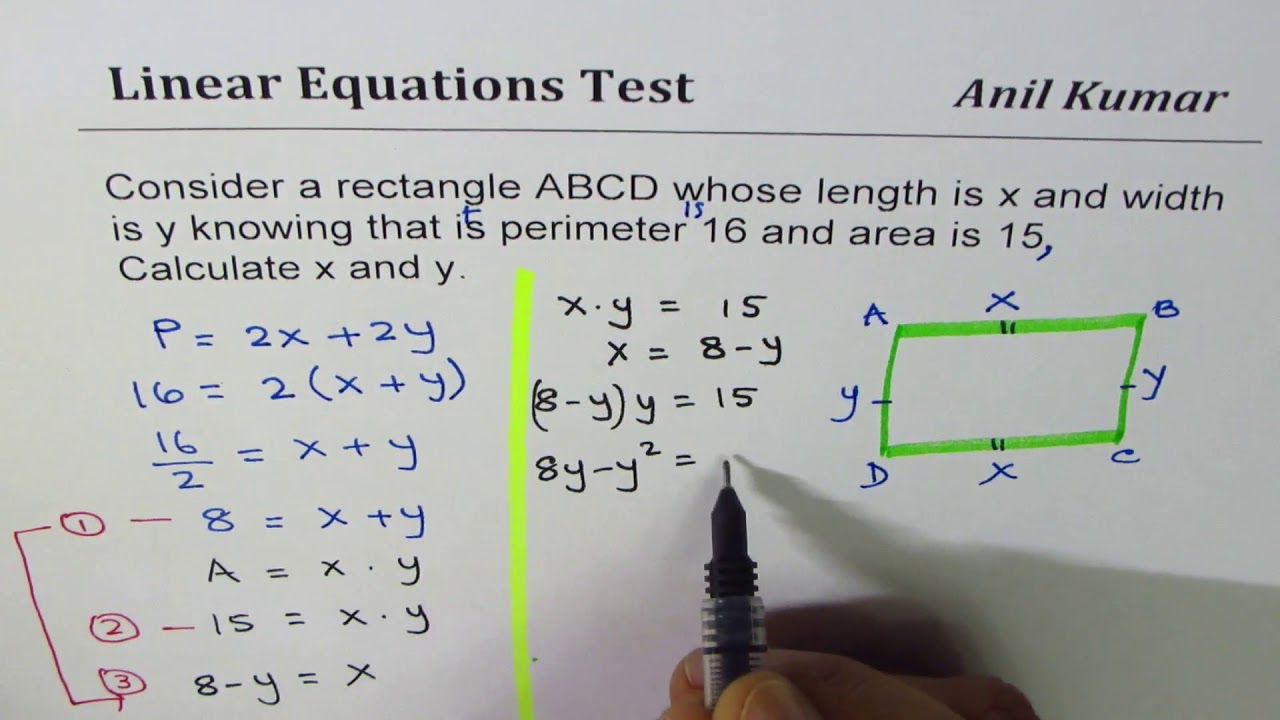 Linear Equations Test
Anil Kumar
Consider a rectangle ABCD whose length is x and width
is y knowing that its perimeter is 16 and area is 15,
Calculate x and y.
P = 2x + 2y
16 = 2(x + y)
16/2 = x + y
① — 8 = x + y
A = x · y
② — 15 = x · y
③ 8 - y = x
x · y = 15
x = 8 - y
(8 - y) y = 15
8y - y² =
A x B
y y
D x C